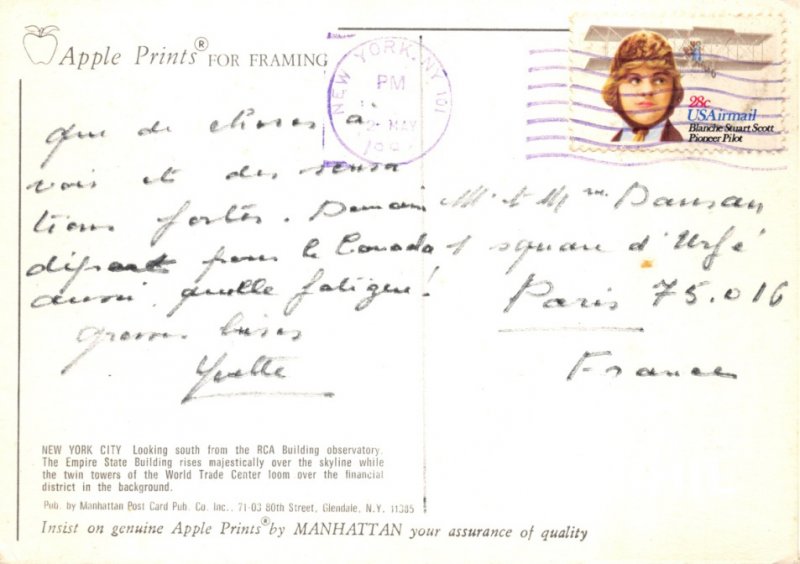 Apple Prints® FOR FRAMING
NEW YORK, NY 101
PM
2 MAY
28c
USAirmail
Blanche Stuart Scott
Pioneer Pilot
que de choses à
voir et des sensa
tions fortes. Demain
départ pour le Canada
aussi, quelle fatigue!
grosses bises
Yvette
M. & Mme
1 square d'Urfé
Paris 75.016
France
NEW YORK CITY Looking south from the RCA Building observatory.
The Empire State Building rises majestically over the skyline while
the twin towers of the World Trade Center loom over the financial
district in the background.
Pub. by Manhattan Post Card Pub. Co. Inc., 71-03 80th Street, Glendale, N.Y. 11385
Insist on genuine Apple Prints® by MANHATTAN your assurance of quality